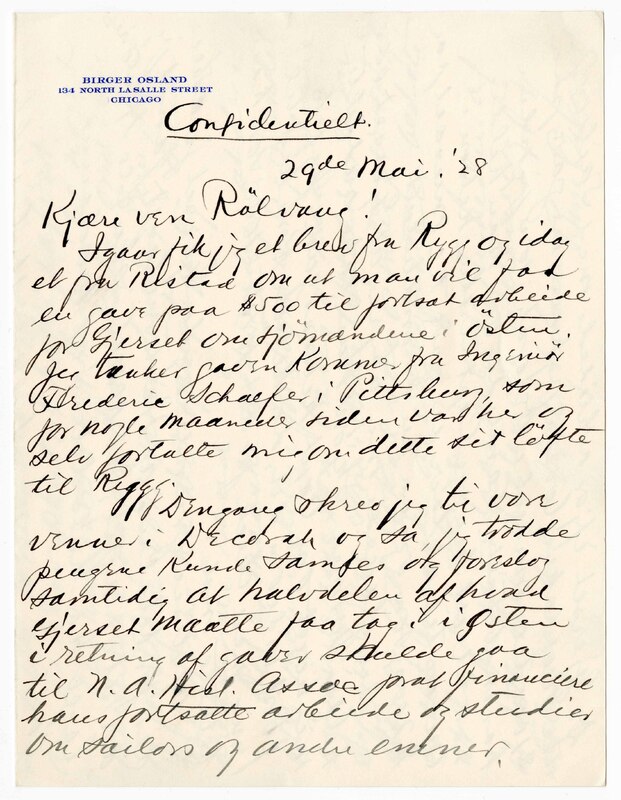 BIRGER OSLAND
134 NORTH LASALLE STREET
CHICAGO
Confidentielt.
29de Mai. '28
Kjære ven Rölvaag!
Igaar fik jeg et brev fra Rygg og idag
et fra Ristad om at man vil faa
en gave paa $500 til fortsat arbeide
for Gjerset om sjömændene i Östen.
Jeg tænker gaven kommer fra Ingeniör
Frederic Schaefer i Pittsburg, som
for nogle maaneder siden var her og
selv fortalte mig om dette sit löfte
til Rygg.
Dengang skrev jeg til vore
venner i Decorah og sa, jeg trodde
pengene kunde samles og foreslog
samtidig at halvdelen af hvad
Gjerset maatte faa tag i i Østen
i retning af gaver skulde gaa
til N. A. Hist. Assoc for at financiere
hans fortsatte arbeide og studier
om sailors og andre emner.